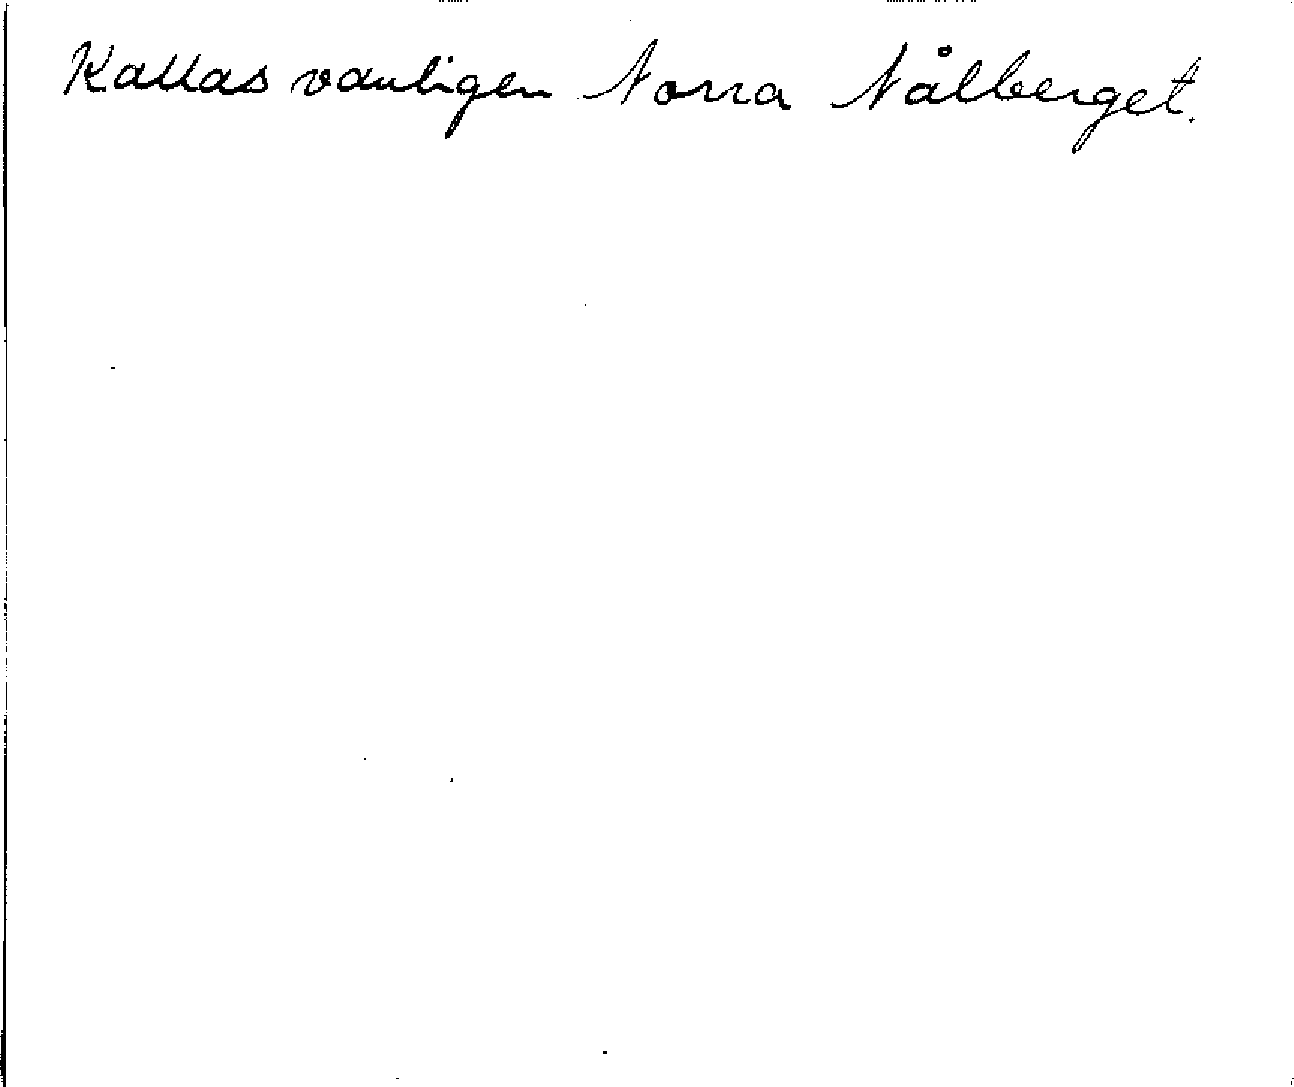 Kallas vanligen Norra Nålberget.